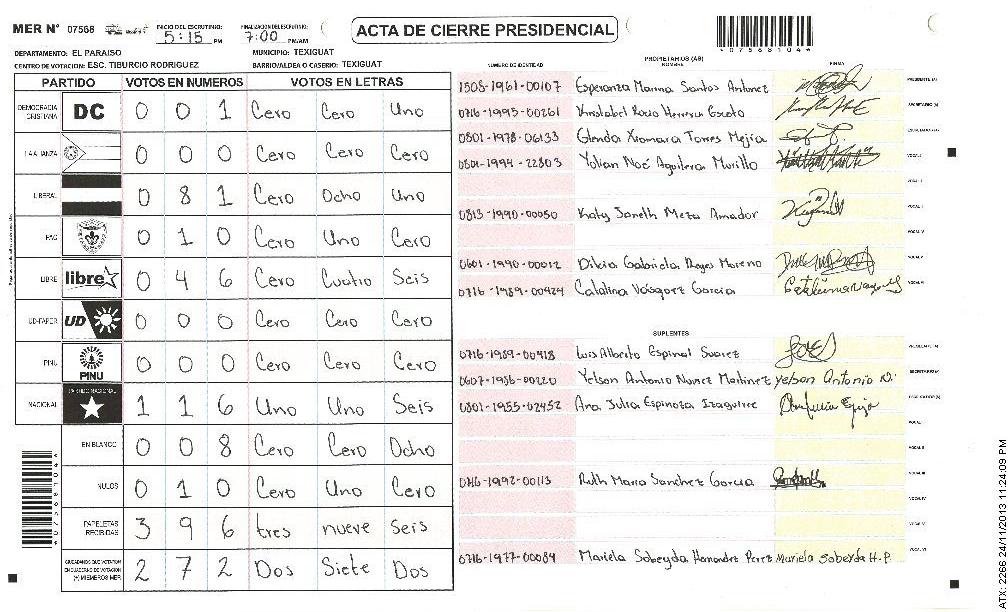 MER N° 07568 INICIO DEL ESCRUTINIO: 5:15 PM FINALIZACION DEL ESCRUTINIO: 7:00 PM/AM ACTA DE CIERRE PRESIDENCIAL
*07568104*
DEPARTAMENTO: EL PARAISO MUNICIPIO: TEXIGUAT
CENTRO DE VOTACION: ESC. TIBURCIO RODRIGUEZ BARRIO/ALDEA O CASERIO: TEXIGUAT
PARTIDO VOTOS EN NUMEROS VOTOS EN LETRAS
DEMOCRACIA CRISTIANA DC 0 0 1 Cero Cero Uno
LA ALIANZA 0 0 0 Cero Cero Cero
LIBERAL 0 8 1 Cero Ocho Uno
PAC 0 1 0 Cero Uno Cero
LIBRE libre 0 4 6 Cero Cuatro Seis
UD-FAPER UD 0 0 0 Cero Cero Cero
PINU PINU 0 0 0 Cero Cero Cero
NACIONAL PARTIDO NACIONAL 1 1 6 Uno Uno Seis
EN BLANCO 0 0 8 Cero Cero Ocho
NULOS 0 1 0 Cero Uno Cero
PAPELETAS RECIBIDAS 3 9 6 tres nueve Seis
CIUDADANOS QUE VOTARON EN CUADERNO DE VOTACION (+) MIEMBROS MER 2 7 2 Dos Siete Dos
PROPIETARIOS (AS)
NUMERO DE IDENTIDAD NOMBRE FIRMA
1508-1961-00107 Esperanza Marina Santos Antunez PRESIDENTE (A)
0716-1995-00261 Kristabel Rocio Herrera SECRETARIO (A)
0801-1978-06133 Glenda Xiomara Torres Mejia ESCRUTADOR (A)
0801-1994-22803 Yolian Noé Aguilera Murillo VOCAL I
VOCAL II
0813-1990-00050 Katy Janeth Meza Amador
VOCAL IV
0601-1990-00012 Dilcia Gabriela Reyes Moreno VOCAL V
0716-1989-00424 Catalina Vásquez Garcia VOCAL VI
SUPLENTES
0716-1989-00418 Luis Alberto Espinal Suarez PRESIDENTE (A)
0607-1986-00220 Yelson Antonio Nunez Martinez yelson Antonio N. SECRETARIO (A)
0801-1955-02452 Ana Julia Espinoza Izaguirre ESCRUTADOR (A)
VOCAL I
VOCAL II
0716-1992-00113 Ruth Maria Sanchez Garcia VOCAL III
VOCAL IV
VOCAL V
0716-1977-00084 Mariela Sobeyda Hernandez Perez Mariela Sobeyda H.P. VOCAL VI
*07568104*
ATX: 2266 24/11/2013 11:24:09 PM